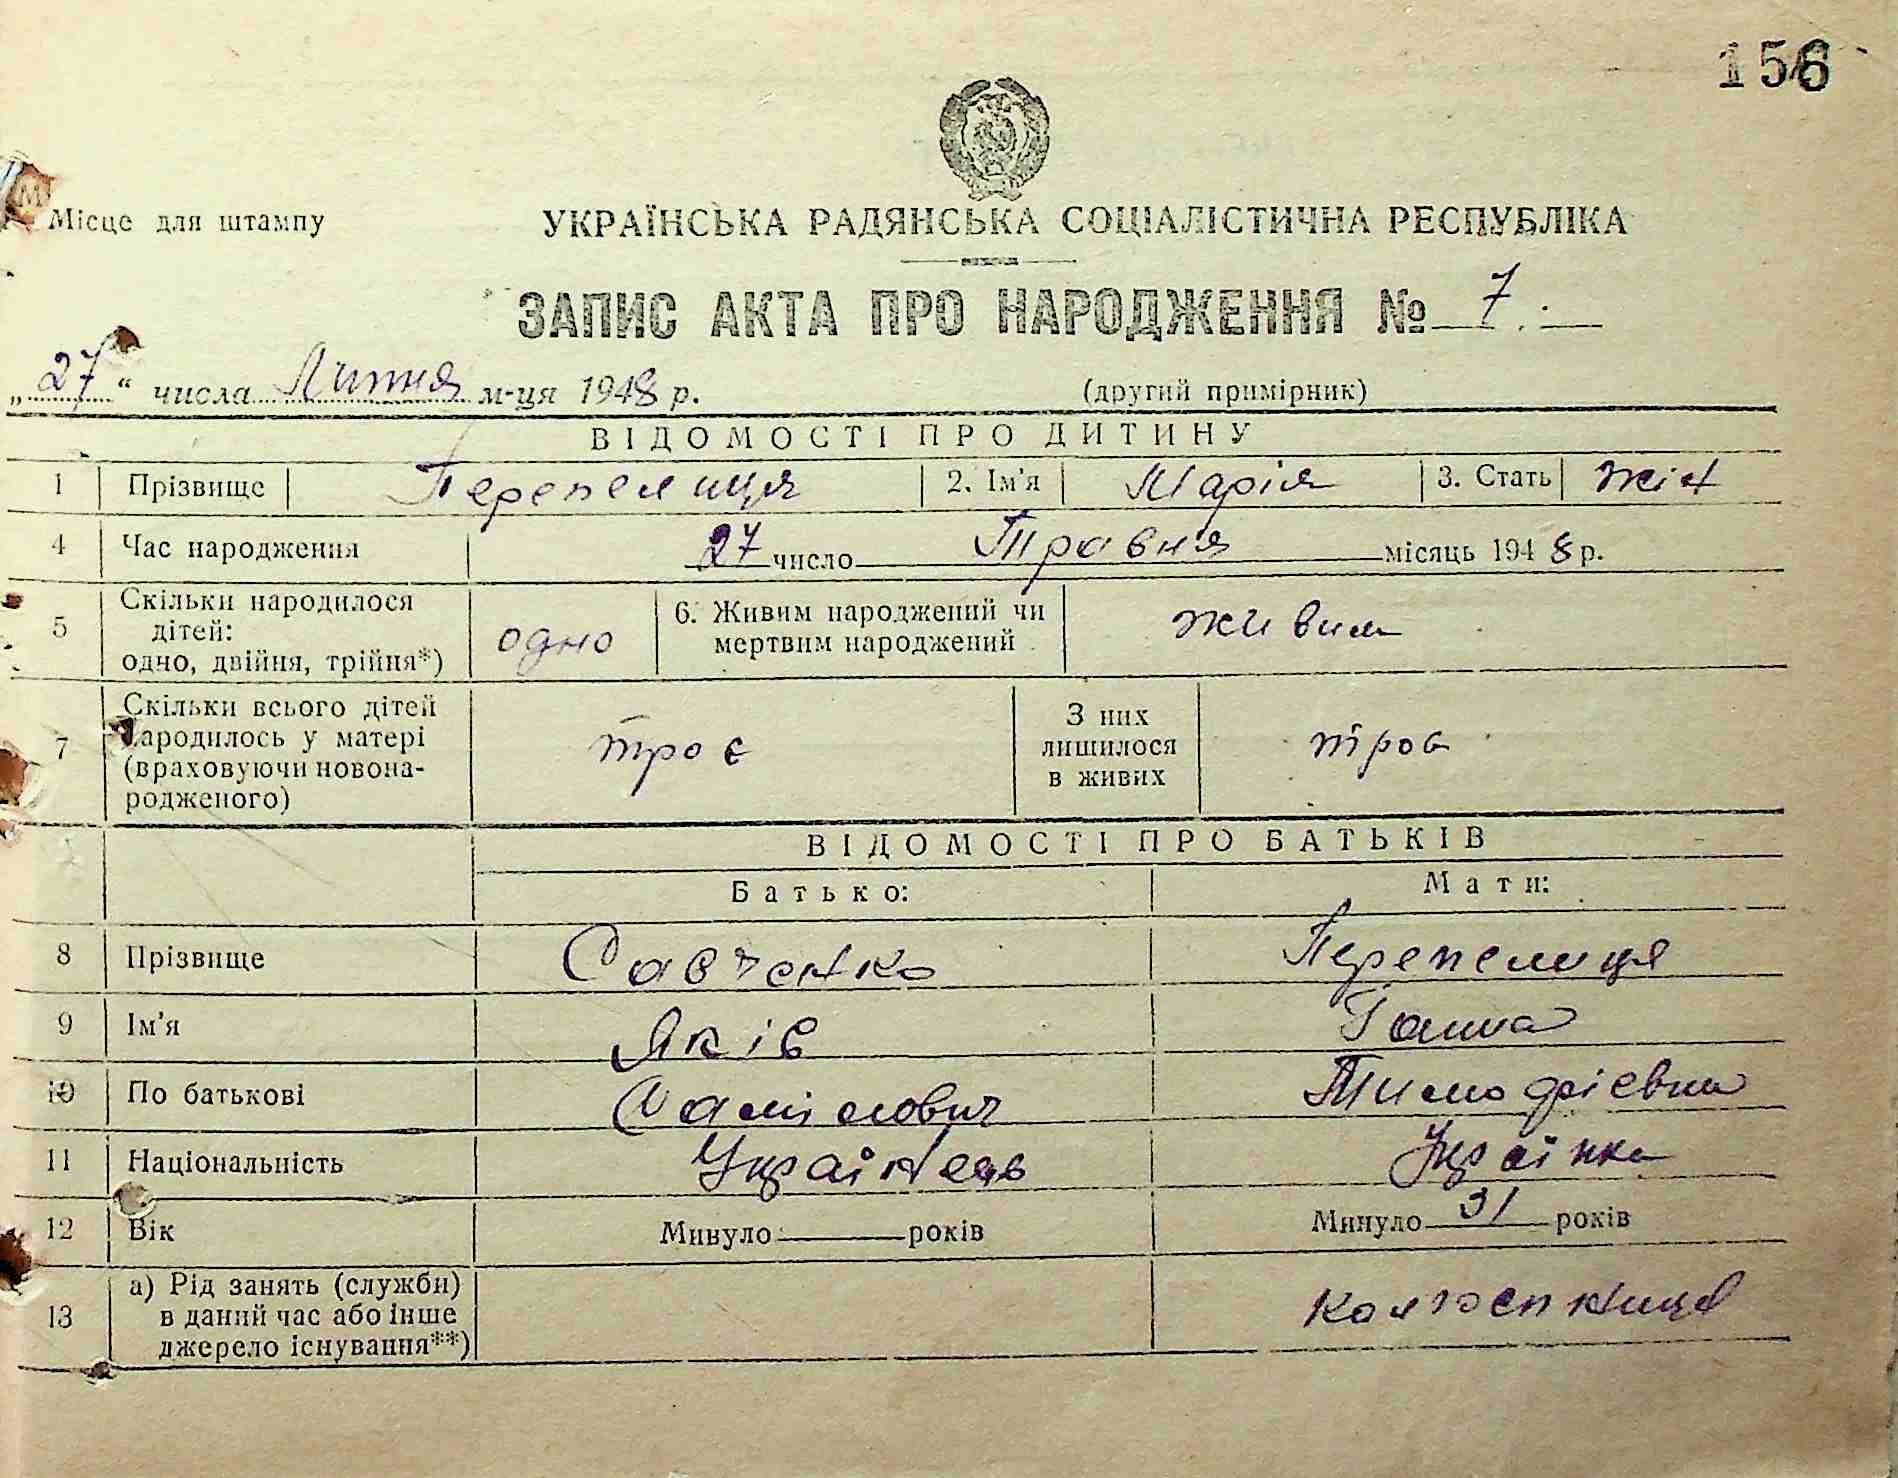 156
Місце для штампу
УКРАЇНСЬКА РАДЯНСЬКА СОЦІАЛІСТИЧНА РЕСПУБЛІКА
ЗАПИС АКТА ПРО НАРОДЖЕННЯ № 7.
„27“ числа Липня м-ця 1948 р. (другий примірник)
ВІДОМОСТІ ПРО ДИТИНУ
1 Прізвище Перепелиця 2. Ім'я Марія 3. Стать жін
4 Час народження 27 число Травня місяць 1948 р.
5 Скільки народилося дітей: одно, двійня, трійня*) одно 6. Живим народжений чи мертвим народжений живим
7 Скільки всього дітей народилось у матері (враховуючи новонародженого) троє З них лишилося в живих троє
ВІДОМОСТІ ПРО БАТЬКІВ
Батько: Мати:
8 Прізвище Савченко Перепелиця
9 Ім'я Яків Ганна
10 По батькові Тимофієвна
11 Національність Українець Українка
12 Вік Минуло років Минуло 31 років
13 а) Рід занять (служби) в даний час або інше джерело існування**) колгоспниця